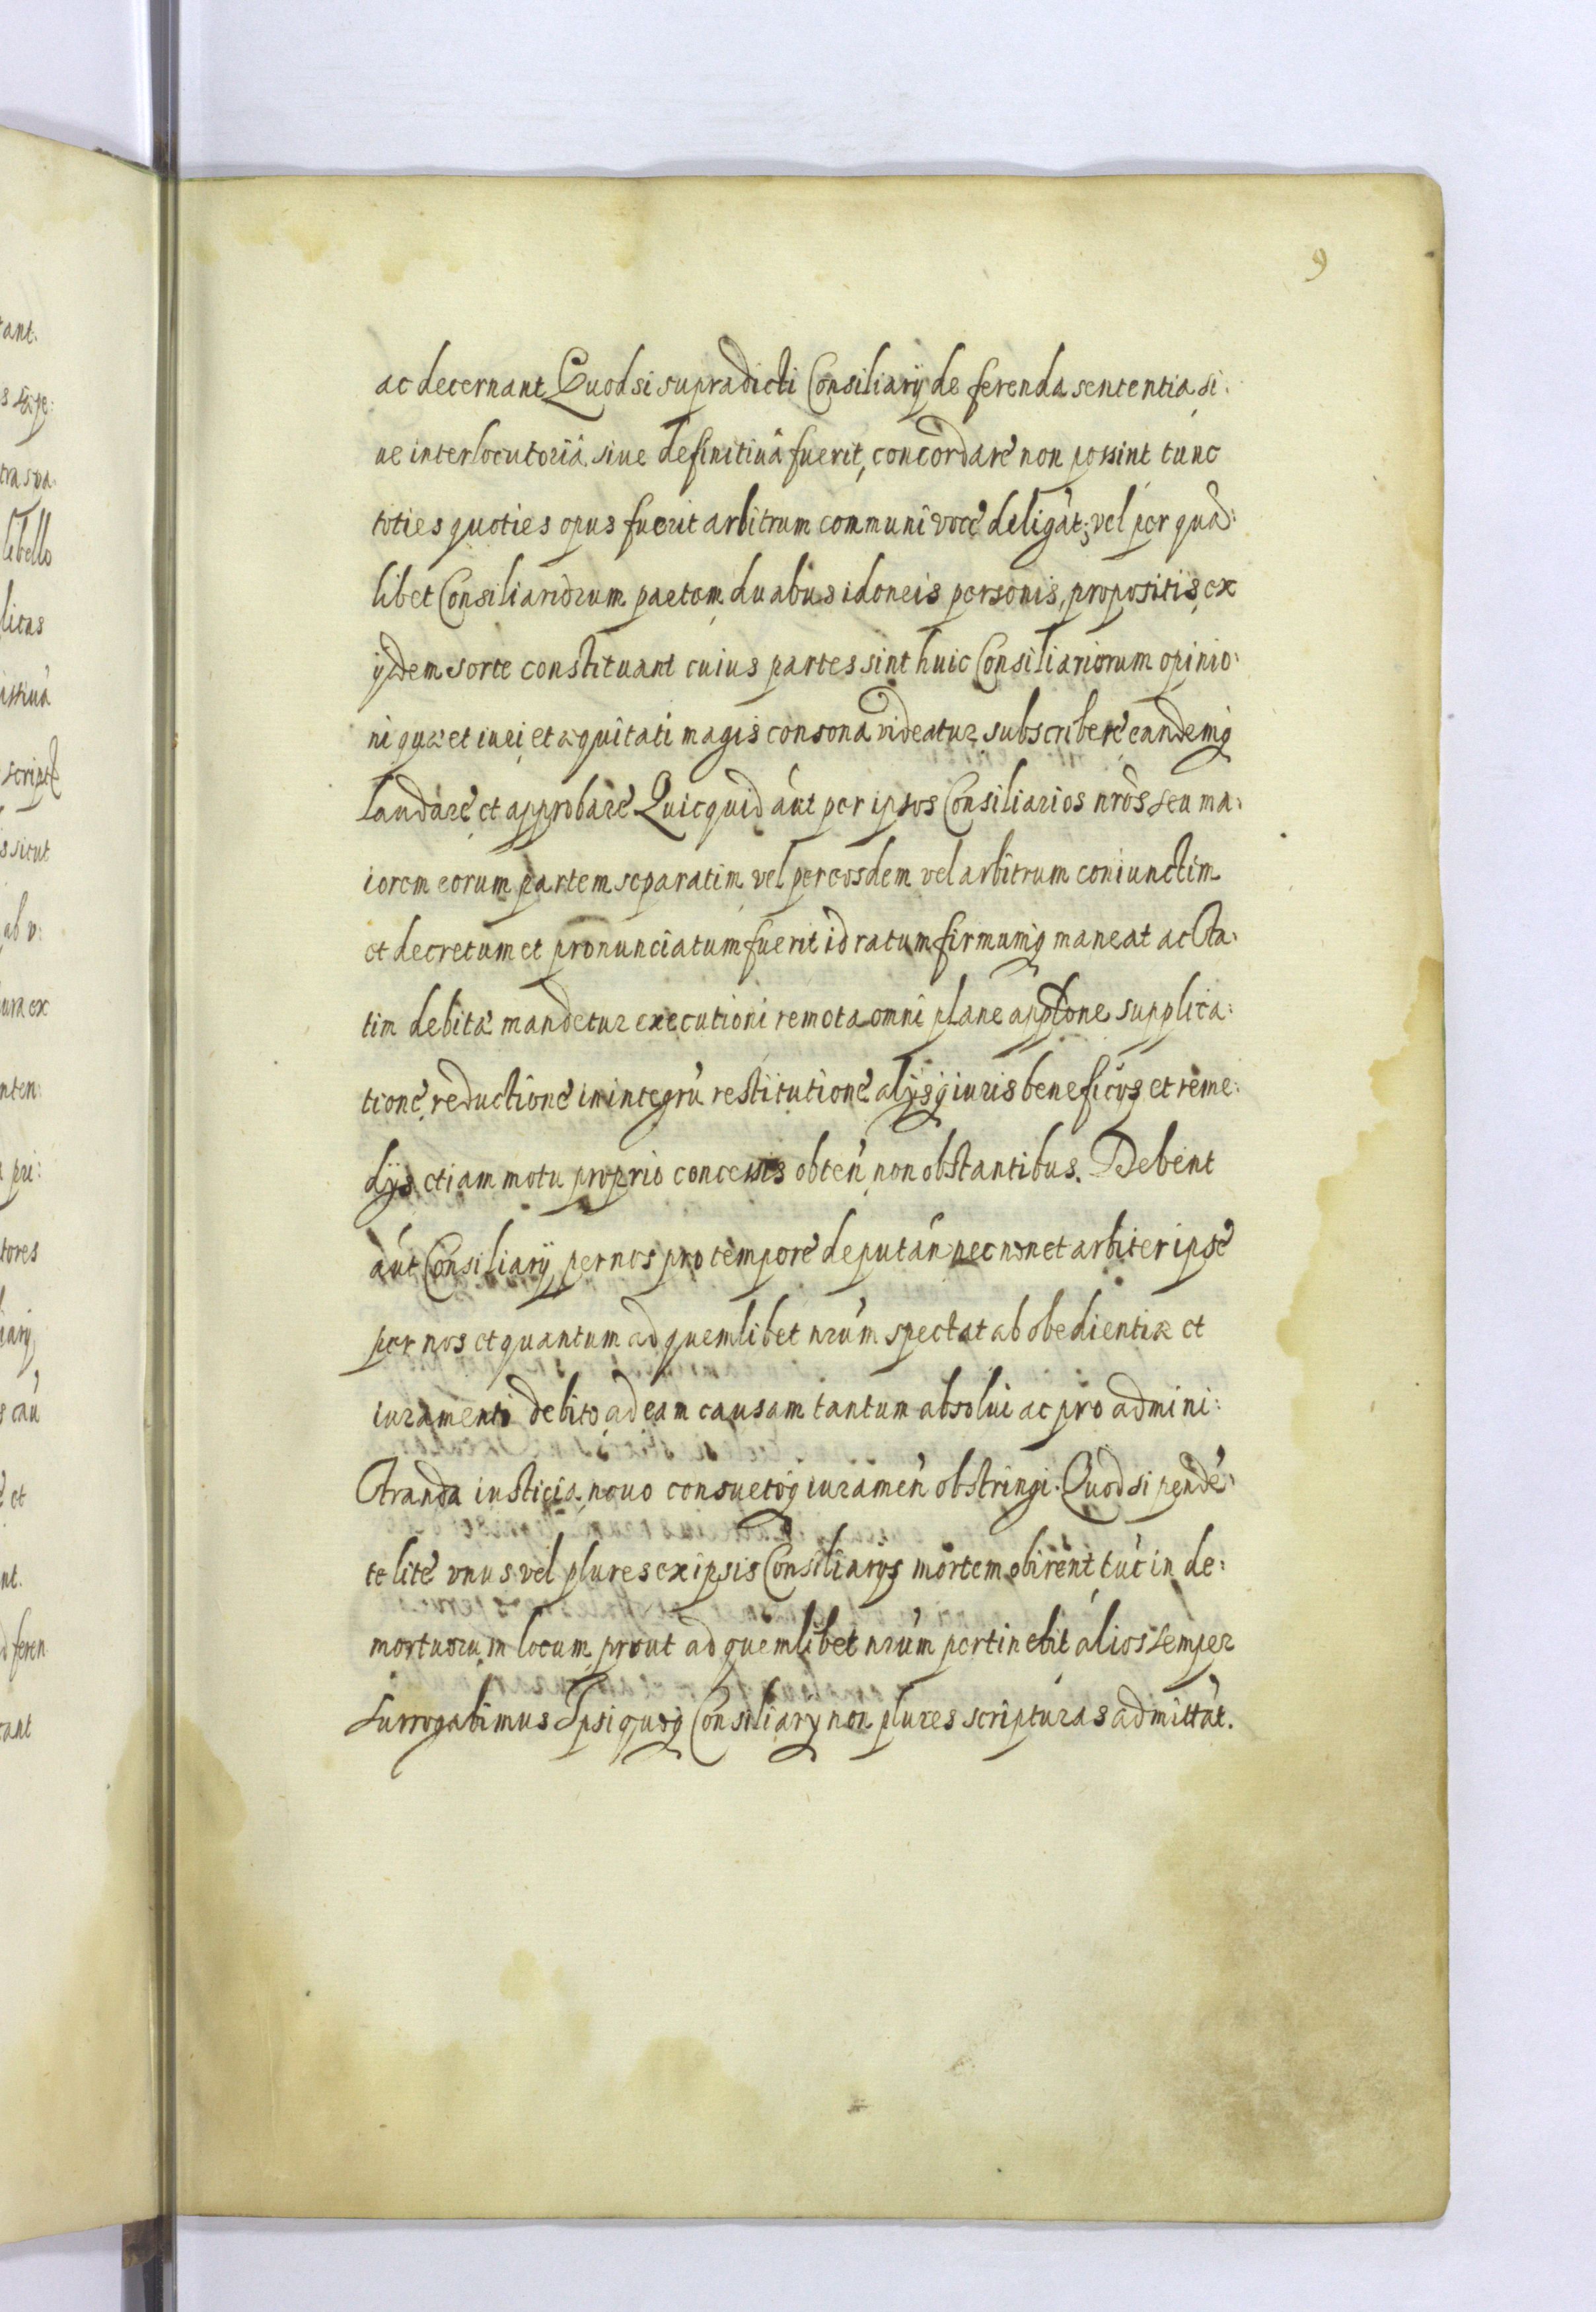 9
ac decernant Quod si supradicti Consiliarij de ferenda sententia, si:
ue interlocutoria siue definitiua fuerit, concordare non possint tunc
toties quoties opus fuerit arbitrum communi voce deligāt, vel per quā:
libet Consiliariorum partem duabus idoneis personis, propositis, ex
ijsdem sorte constituant cuius partes sint huic Consiliariorum opinio:
ni quæ et iuri et æquitati magis consona videatur subscribere eandemq
laudare et approbare Quicquid aūt per ipsos Consiliarios nrōs seu ma:
iorem eorum partem separatim vel per eosdem vel arbitrum coniunctim
et decretum et pronunciatum fuerit id ratum firmumq maneat ac sta:
tim debitæ mandetur executioni remota omni plane appltone, supplica:
tione, reductione in integrū restitutione alijsq iuris beneficijs et reme:
dijs, etiam motu proprio concessis obteñ non obstantibus. Debent
aūt Consiliarij per nos pro tempore deputāñ necnon et arbiter ipse
per nos et quantum ad quemlibet nrūm spectat ab obedientiæ et
iuramenti debito, ad eam causam tantum absolui ac pro admini:
stranda iusticia, nouo consuetoq iurameñ obstringi. Quod si pendē:
te lite vnus vel plures ex ipsis Consiliarijs mortem obirent tūc in de:
mortuorum locum, prout ad quemlibet nrūm pertinebit alios semper
surrogabimus Ipsi quoq Consiliarij non plures scripturas admittāt.
tant.
libello
script
sicut
ab v:
ura ex
nten:
pri:
tores
iarij
caū
et
nt.
feren
rant